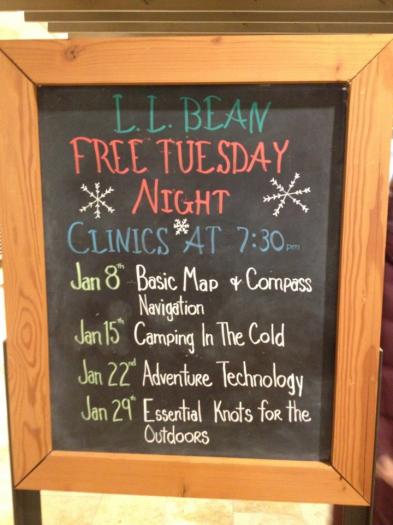 L.L. BEAN
FREE TUESDAY
NIGHT
CLINICS AT 7:30pm
Jan 8th Basic Map & Compass
Navigation
Jan 15th Camping In The Cold
Jan 22nd Adventure Technology
Jan 29th Essential Knots for the
Outdoors